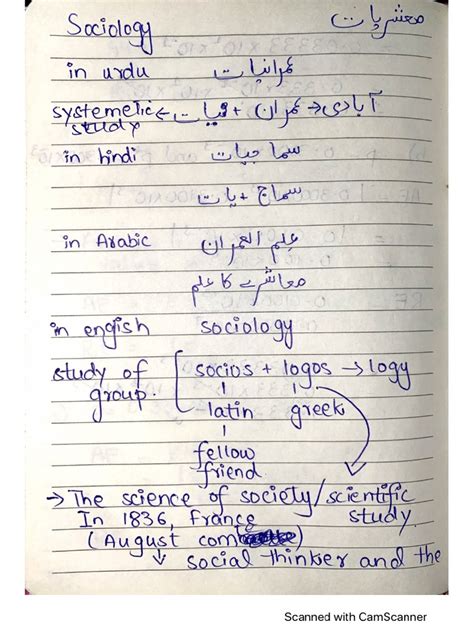 Sociology معشریات
in urdu عمرانیات
systemetic ← یات + عمران → آبادی
study
in hindi سماجیات
سماج + یات
in Arabic عِلم العمران
معاشرے کا علم
in engish sociology
study of socios + logos → logy
group. latin greek
fellow
friend
→ The science of society/scientific
In 1836, France study
(August com
social thinker and the
Scanned with CamScanner